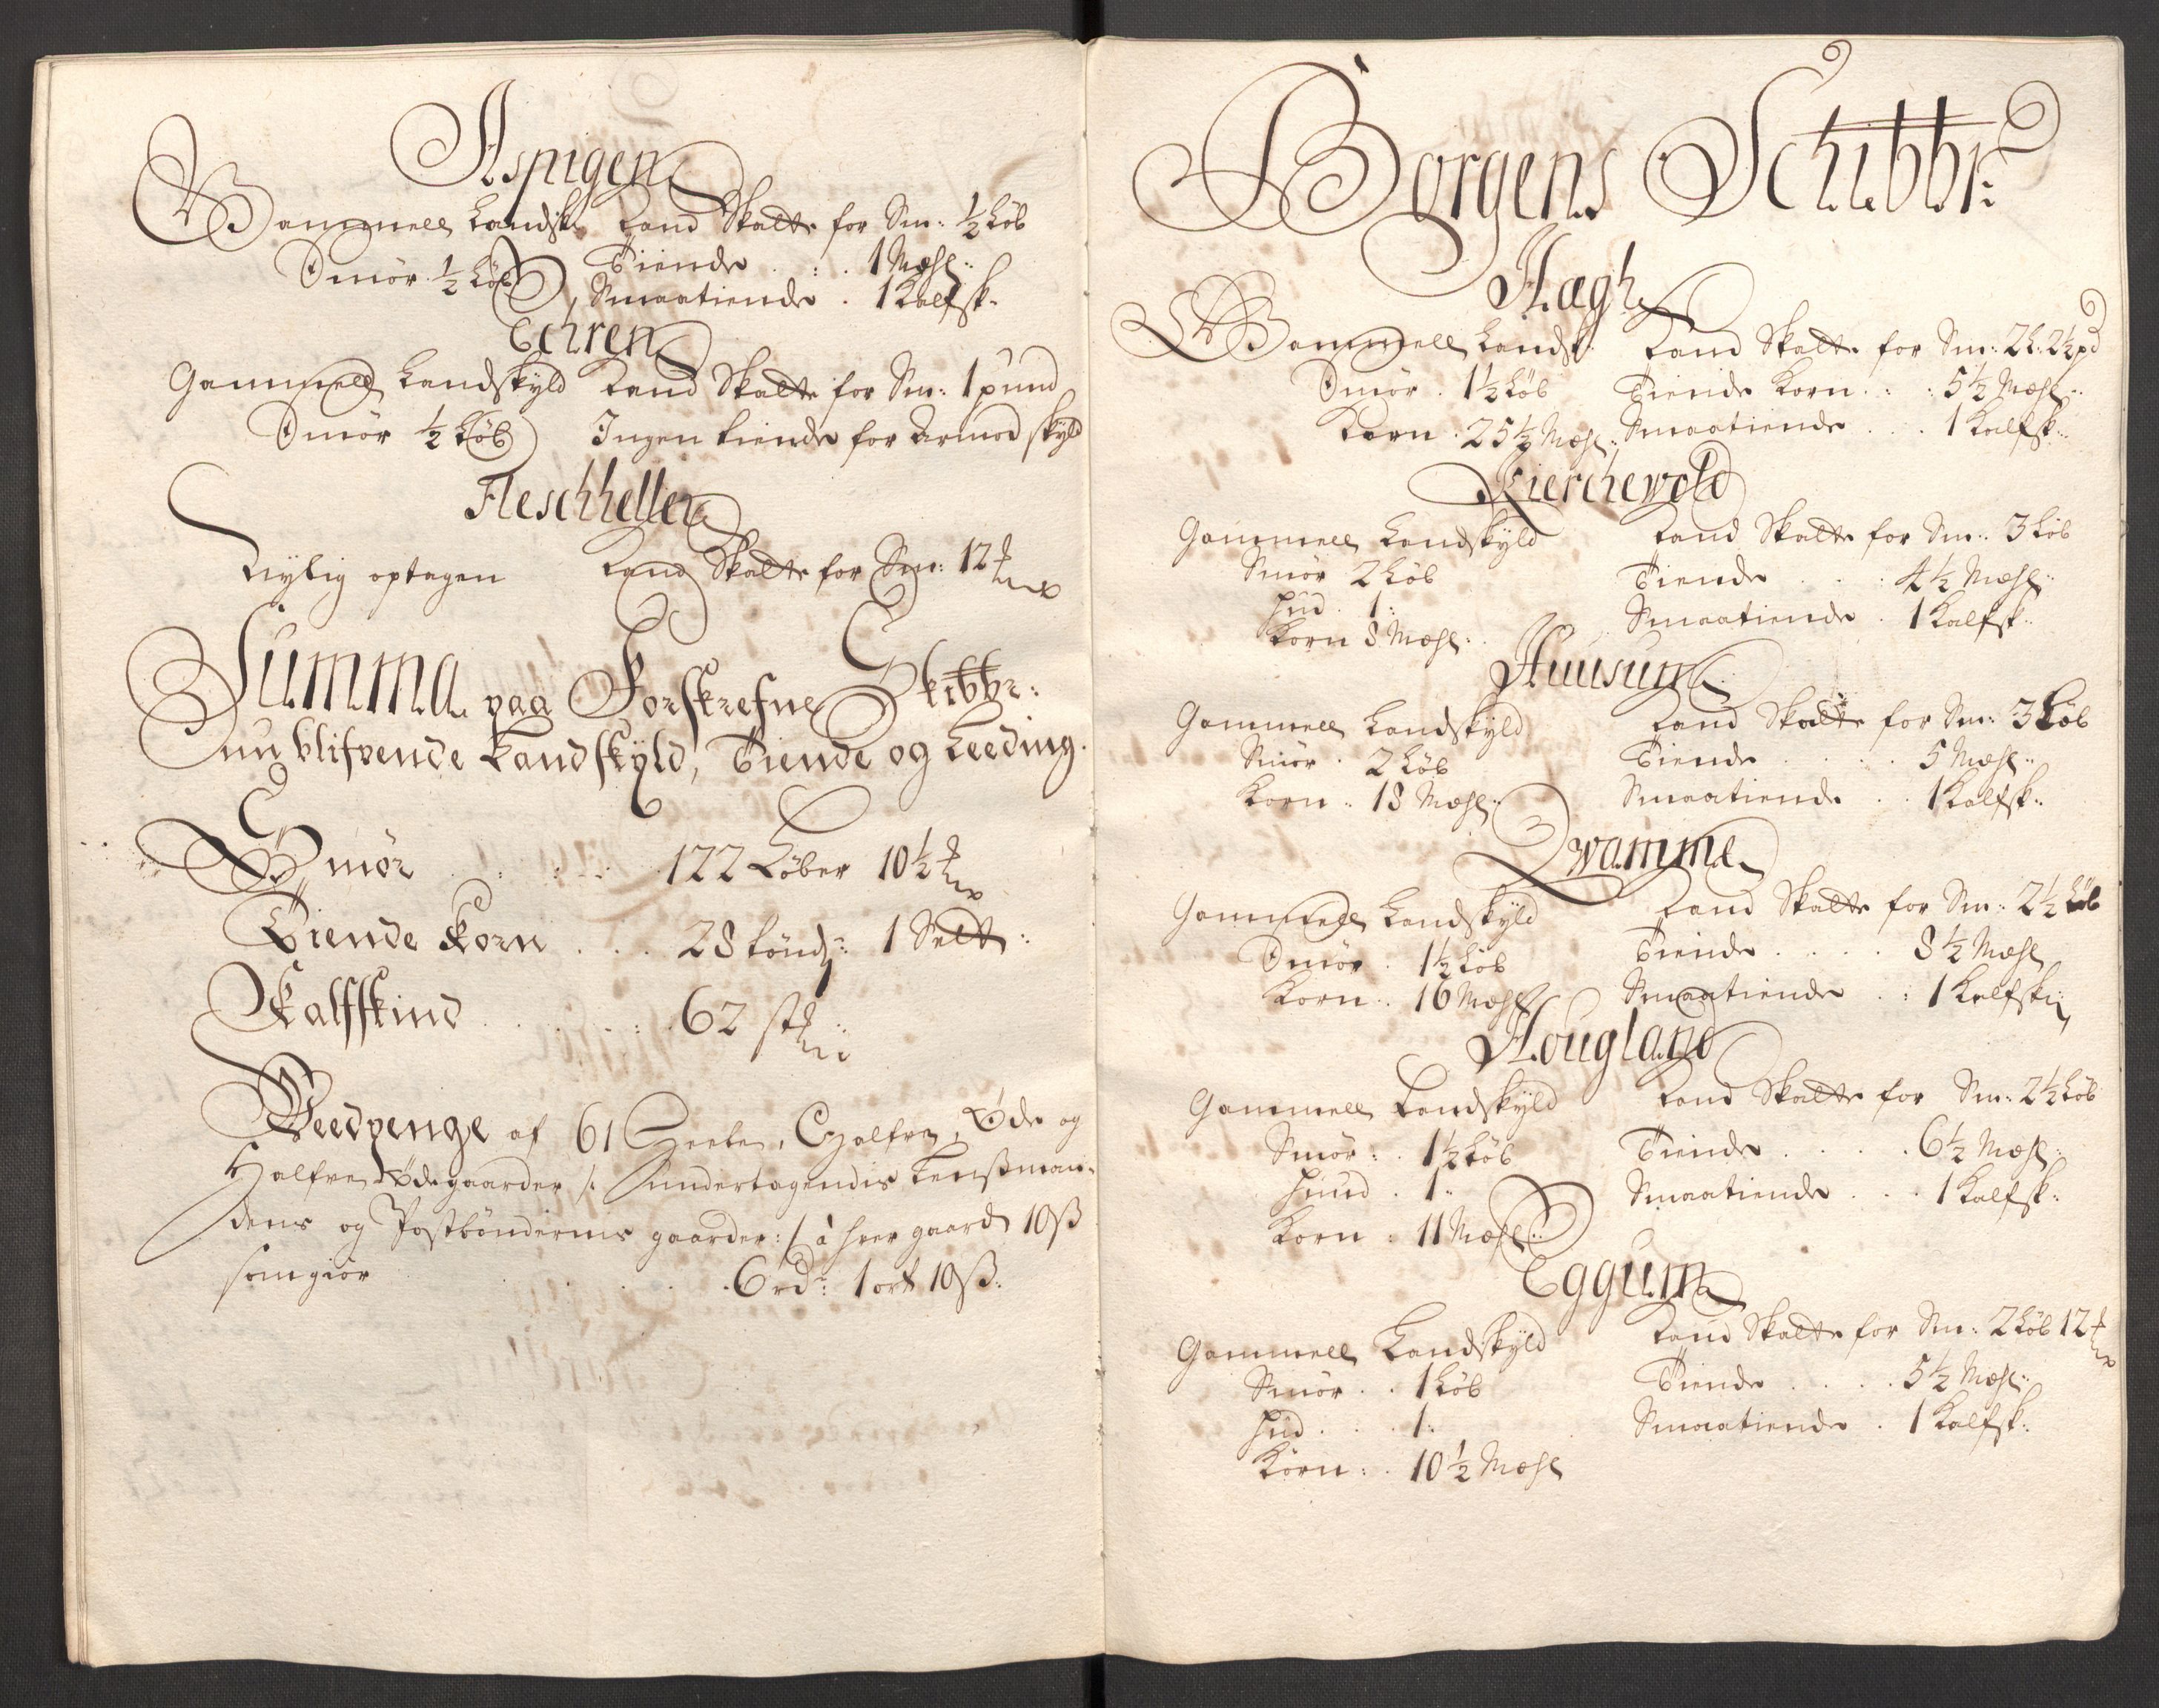 Aspigen
Gammell Landsk Land Skatt for Sm: ½ Løb
Smør ½ Løb Tiende . : . 1 Mæhl:
Smaatiende . 1 Kalfsk.
Ehren
Gammell Landskyld Land Skatt for Sm: 1 pund
Smør ½ Løb Ingen tiende for Armod skyld
Fleschheller
Nylig optagen Land Skatt for Sm: 12
Summa paa Forskrefne Skibbr:
nu blifvende Landskyld, Tiende og Leeding.
Smør 122 Løber 10½
Tiende Korn . . . 28 tønd: 1 Sett:
Kalfskind . . . . . : 62 st
Veedpenge af 61 Heele, Halfve, Øde og
Halfve Ødegaarder /: undertagendis Lensman-
dens og Postbøndernes gaarder: / à hver gaard 10 ß
som giør . . . . . 6 rd: 1 ort 10 ß:
Borgens Schibbr:
Hægh
Gammell Landsk: Land Skatt for Sm: 2 L: 2½ pd
Smør . 1½ Løb Tiende Korn . : . : 5½ Mæhl:
Korn . 25½ Mæhl: Smaatiende . . . 1 Kalfsk:
Kierchevold
Gammell Landskyld Land Skatt for Sm: 3 Løb
Smør 2 Løb Tiende . . . : 4½ Mæhl:
Hud . 1: Smaatiende . 1 Kalfsk:
Korn 8 Mæhl:
Huusum
Gammell Landskyld Land Skatt for Sm: 3 Løb
Smør . 2 Løb Tiende . . . . . 5 Mæhl:
Korn : 18 Mæhl: Smaatiende . . 1 Kalfsk:
Qwamme
Gammell Landskyld Land Skatt for Sm: 2½ Løb
Smør . 1½ Løb Tiende . . . . 8½ Mæhl
Korn : 16 Mæhl Smaatiende . : 1 Kalfsk:
Hougland
Gammell Landskyld Land Skatt for Sm: 2½ Løb
Smør : . 1½ Løb Tiende . . . . . 6½ Mæhl:
Huud . 1: Smaatiende . . . 1 Kalfsk:
Korn : 11 Mæhl:
Eggum
Gammell Landskyld Land Skatt for Sm: 2 Løb 12
Smør . . 1 Løb Tiende . . . . . 5½ Mæhl:
Hud . . . 1: Smaatiende . 1 Kalfsk:
Korn : . 10½ Mæhl